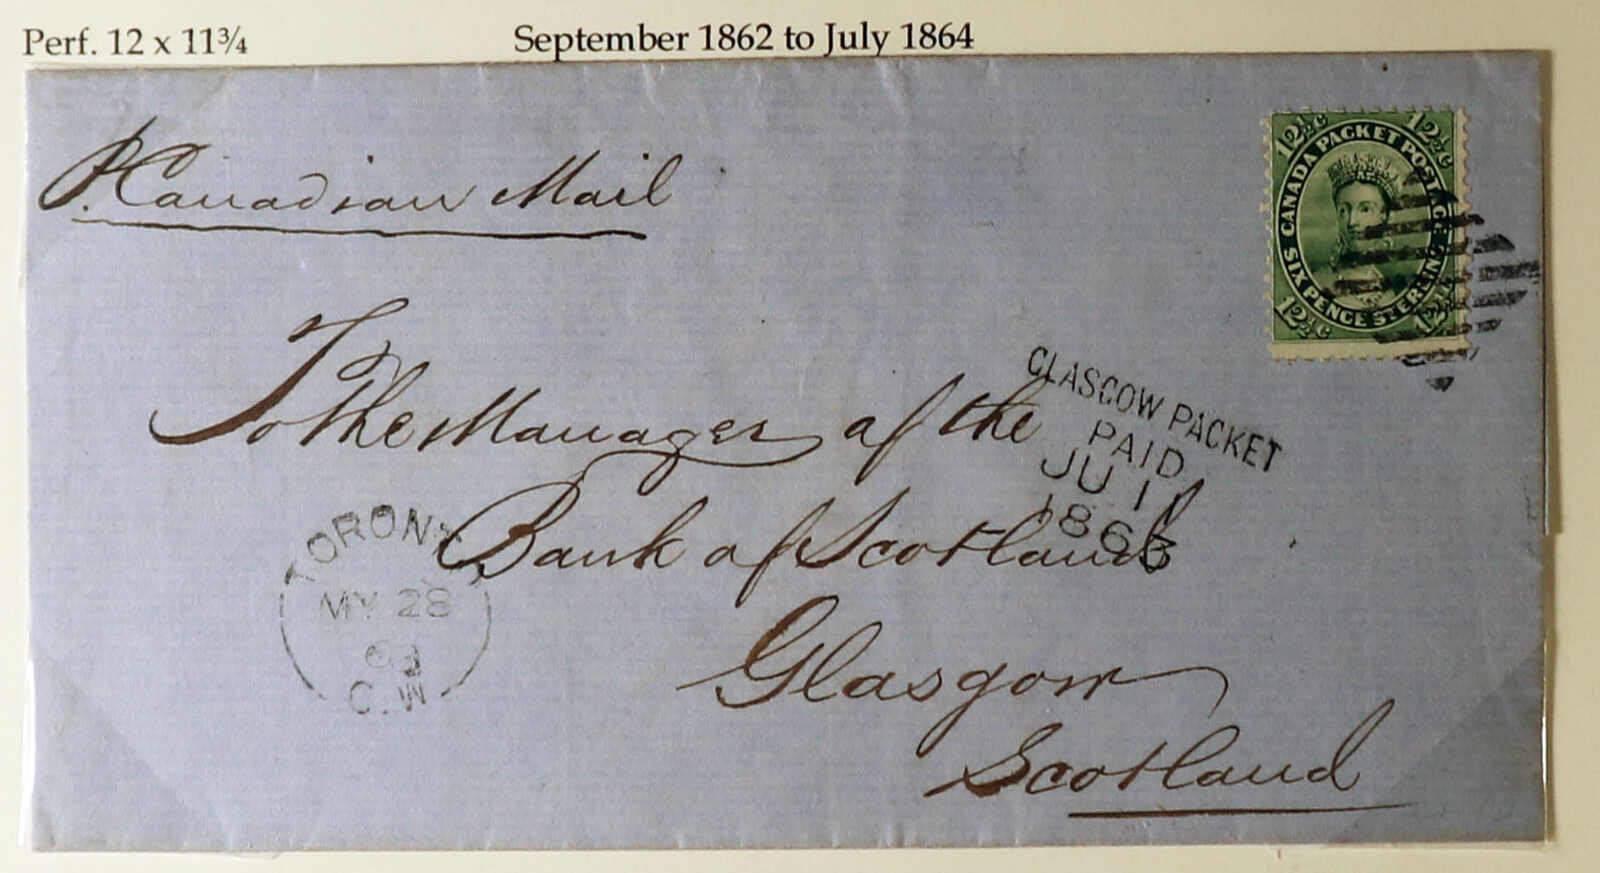 Perf. 12 x 11¾
September 1862 to July 1864
P. Canadian Mail
12½c 12½c
CANADA PACKET POSTAGE
SIX PENCE STERLING
12½c 12½c
To the Manager of the
GLASGOW PACKET
PAID
JU 11
1863
Bank of Scotland
TORONTO
MY 28
63
C.W
Glasgow
Scotland